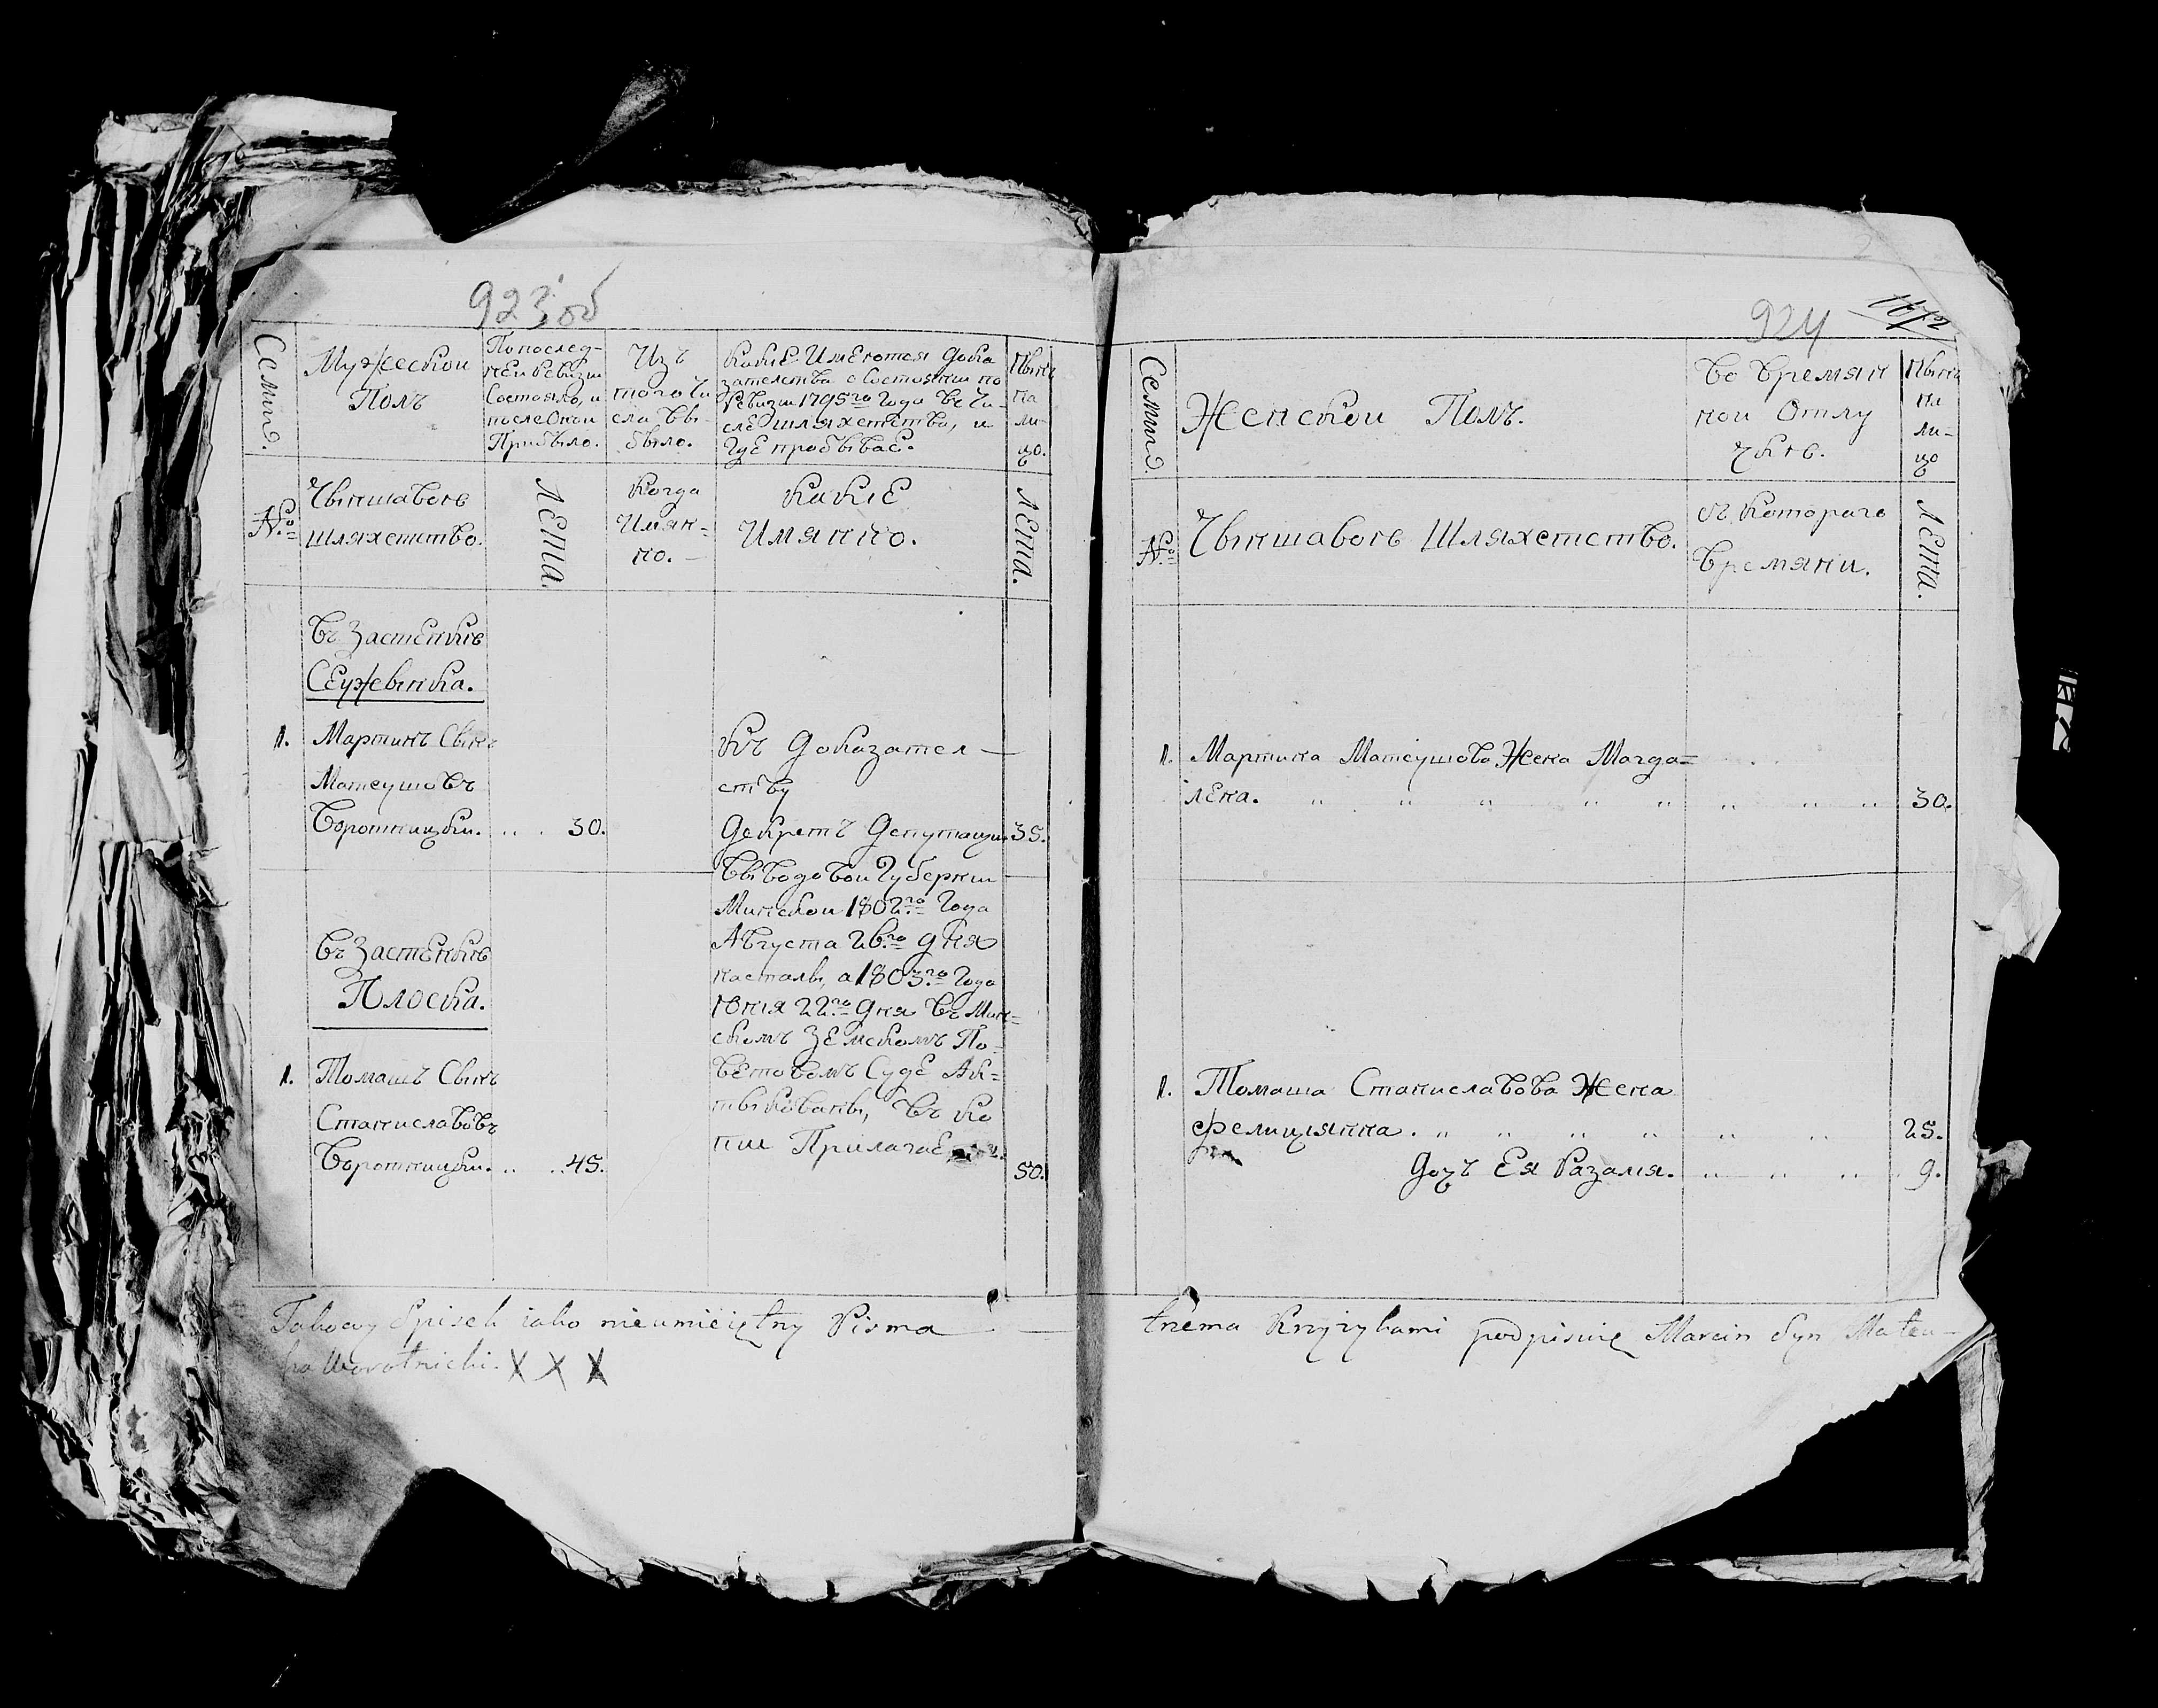 923 об
Семии.
Мужескои
Полъ
По послед-
неи Ревизии
Состояло, и
после Онои
Прибыло.
Изъ
того чи
сла вы
было.
Какие Имеются дока
зателства о Состоянии по
Ревизии 1795го Года въ чи-
сле шляхетства, и
где пробывае.
Ныне
на
ли-
цо.
№
Чыншавое
шляхетство.
Лета.
Когда
Имян-
но.
Какие
Имянно.
Лета.
Въ Застенке
Сеужевника.
1. Мартинъ Сынъ
Матеушовъ
Воротницки. .. . 30.
Къ доказател
ству
Декретъ Депутации 35.
Выводовои Губернии
Минскои 1802го Года
Августа 26го дня
насталы, а 1803го Года
Юния 22го дня въ Мин=
скомъ Земскомъ По-
ветовомъ Суде Ак=
тыкованы, въ Ко
пии Прилагае
Въ Застенке
Плоска.
1. Томашъ Сынъ
Станиславовъ
Воротницки. .. . 45.
50.
Takowy Spisek iako nieumieiętny Pisma
Worotnicki. X X X
924
Семии.
Женскои Полъ.
Во Времян
нои Отлу
чке.
Ныне
на
ли-
цо
№
Чыншавое Шляхетство.
Съ Котораго
Времяни.
Лета.
1. Мартина Матеушова Жена Магда=
лена. 30.
1. Томаша Станиславова Жена
Фелицыянна. 25.
Дочъ Ея Разалия. 9.
trzema Krzyzykami podpisuię Marcin Syn Mateu-